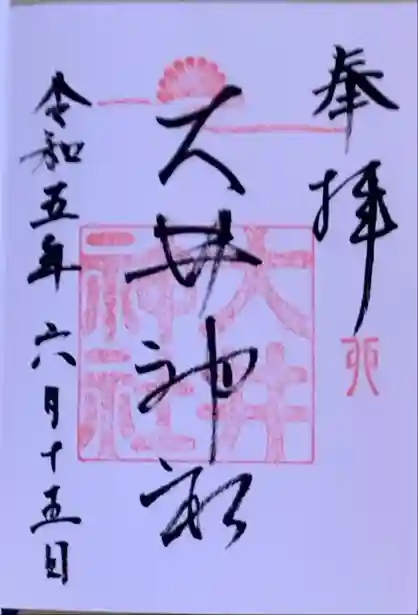 奉拝
卯
大井神社
大井神社
令和五年六月十五日